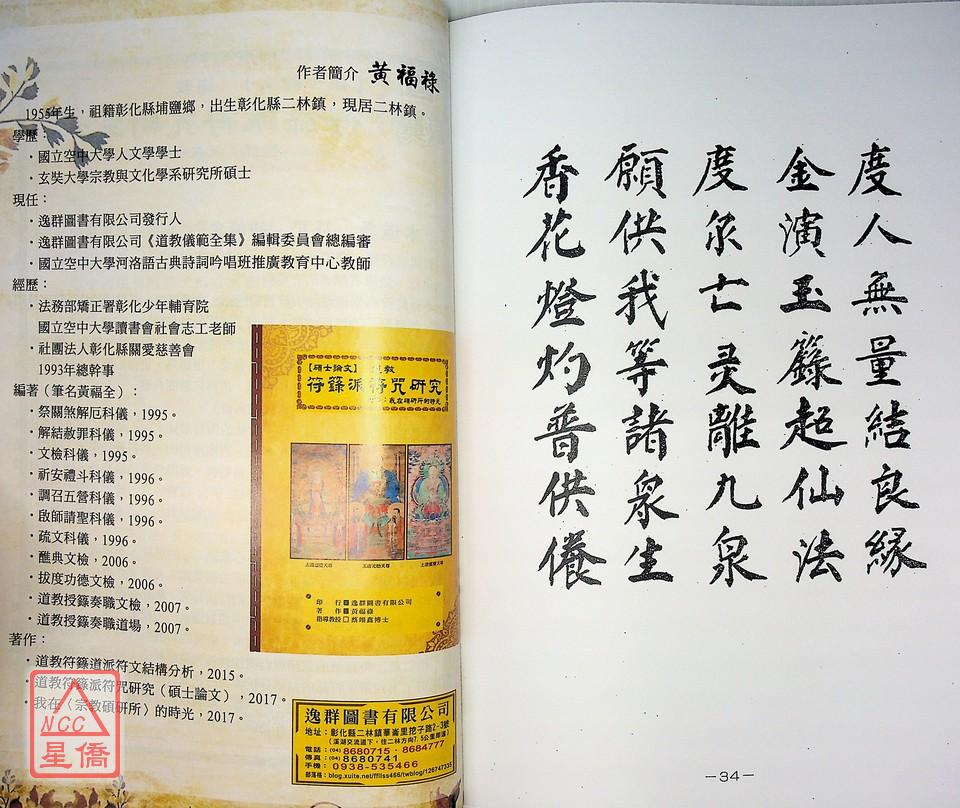 作者簡介 黃福祿
1955年生，祖籍彰化縣埔鹽鄉，出生彰化縣二林鎮，現居二林鎮。
學歷：
・國立空中大學人文學學士
・玄奘大學宗教與文化學系研究所碩士
現任：
・逸群圖書有限公司發行人
・逸群圖書有限公司《道教儀範全集》編輯委員會總編審
・國立空中大學河洛語古典詩詞吟唱班推廣教育中心教師
經歷：
・法務部矯正署彰化少年輔育院
國立空中大學讀書會社會志工老師
・社團法人彰化縣關愛慈善會
1993年總幹事
編著（筆名黃福全）：
・祭關煞解厄科儀，1995。
・解結赦罪科儀，1995。
・文檢科儀，1995。
・祈安禮斗科儀，1996。
・調召五營科儀，1996。
・啟師請聖科儀，1996。
・疏文科儀，1996。
・醮典文檢，2006。
・拔度功德文檢，2006。
・道教授籙奏職文檢，2007。
・道教授籙奏職道場，2007。
著作：
・道教符籙道派符文結構分析，2015。
・道教符籙派符咒研究（碩士論文），2017。
・我在〈宗教碩研所〉的時光，2017。
【碩士論文】 道教
符籙派符咒研究
：我在碩研所的時光
太清道德天尊
玉清元始天尊
上清靈寶天尊
印 行 逸群圖書有限公司
著 作 黃福祿
指導教授 蔡翊鑫博士
逸群圖書有限公司
地址：彰化縣二林鎮華崙里挖子路2-3號
（溪湖交流道下，往二林方向7.5公里即達）
電話：(04) 8680715．8684777
傳真：(04) 8680741
手機：0938-535466
部落格：blog.xuite.net/ffllss466/twblog/126747335
NCC
星僑
度人無量結良緣
金演玉籙超仙法
度尔亡灵離九泉
願供我等諸眾生
香花燈灼普供養
－34－